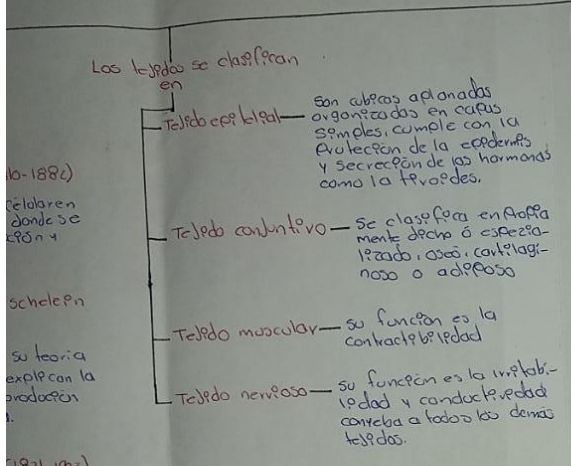 Los tejidos se clasifican
en
Tejido epitelial — Son cubicas aplanadas
organizadas en capas
simples, cumple con la
protección de la epidermis
y secreción de las hormonas
como la tiroides.
Tejido conjuntivo — Se clasifica en Propia
mente dicho ó especia-
lizado, oseo, cartilagi-
noso o adiposo
Tejido muscular — su función es la
contractibilidad
Tejido nervioso — su función es la irritabi-
lidad y conductividad
conveba a todos los demás
tejidos.
celular en
donde se
ción y
schelein
su teoria
explican la